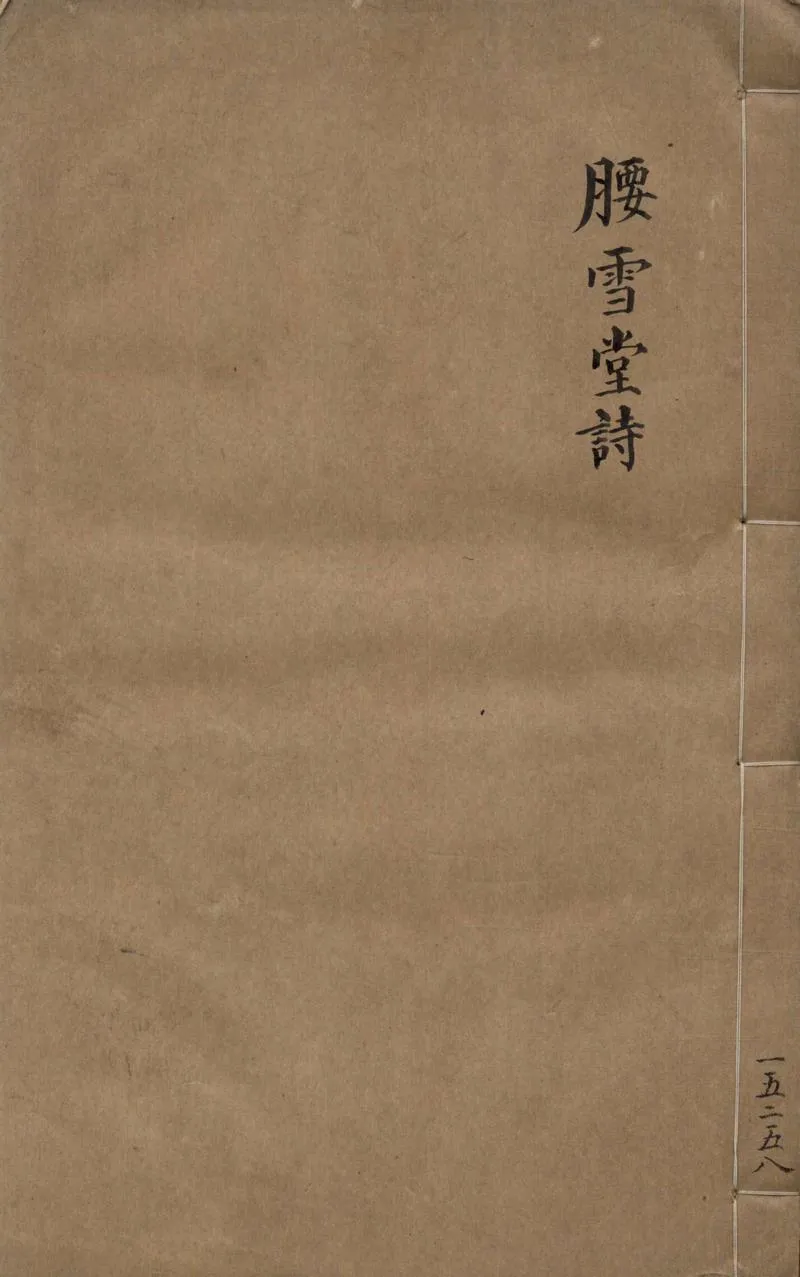 腰雪堂詩
一五二五八